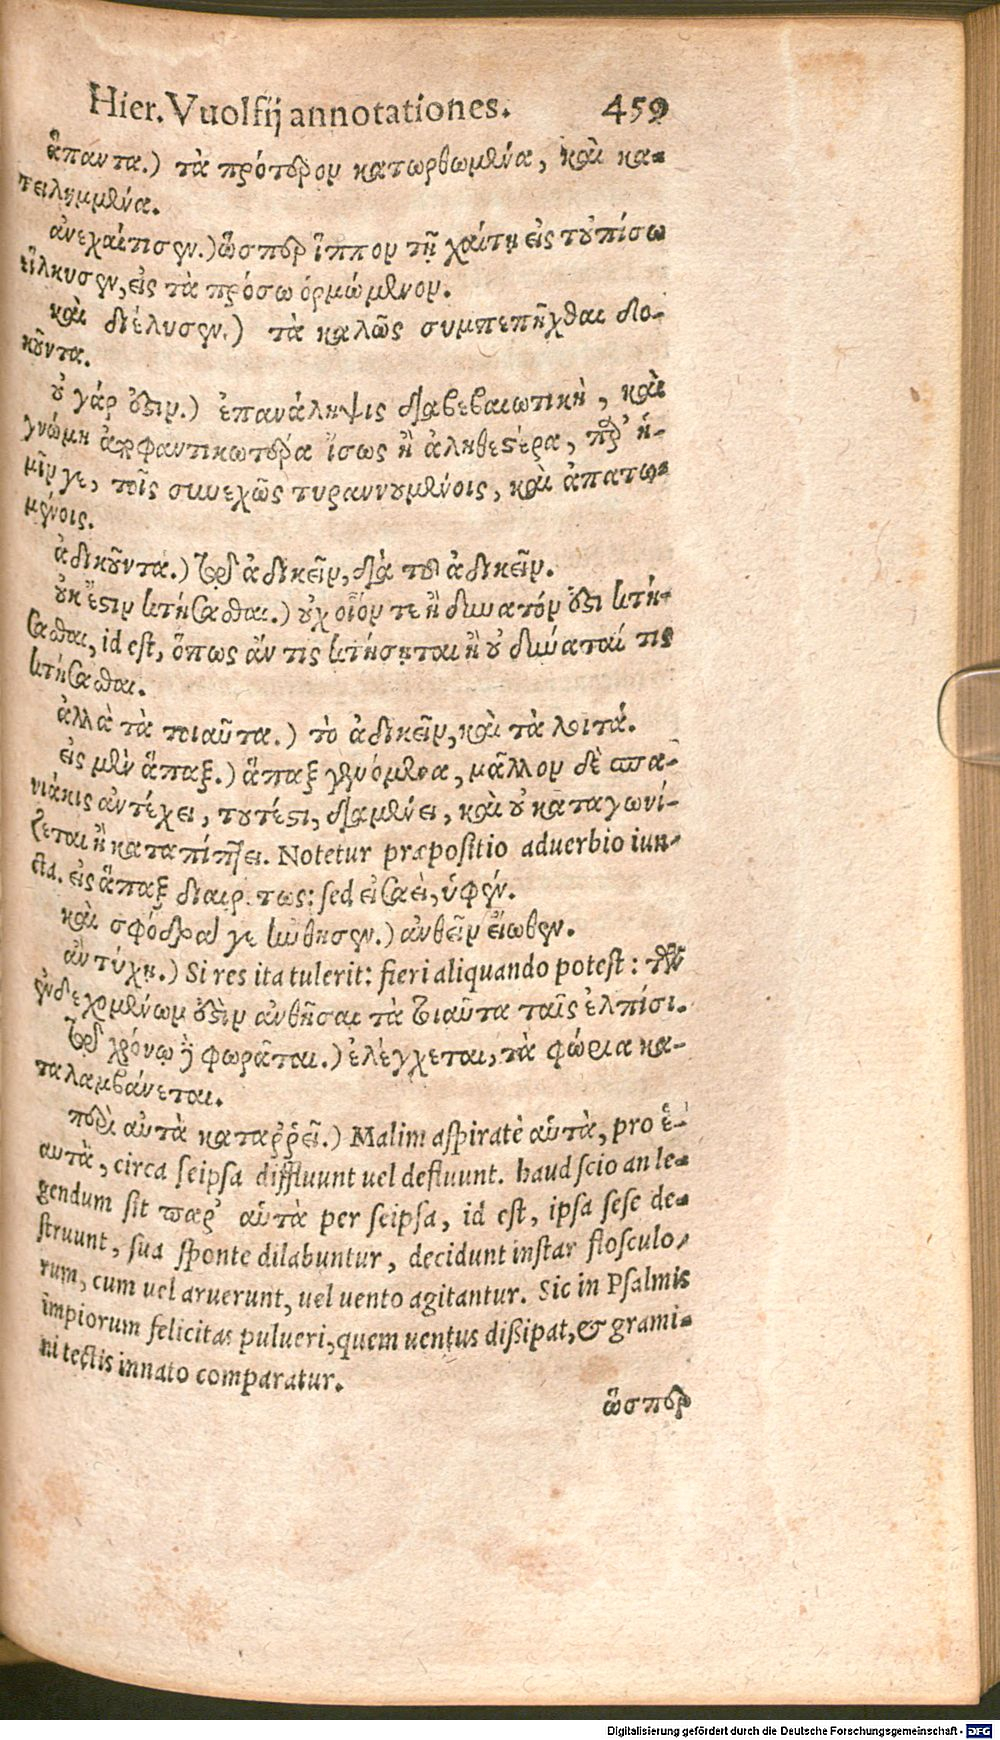 Hier. Vuolfij annotationes. 459
ἅπαντα.) τὰ πρότερον κατωρθωμένα, καὶ κα-
τειλημμένα.
ἀνεχαίτισεν.) ὥσπερ ἵππον τῇ χαίτῃ εἰς τοὐπίσω
εἵλκυσεν, εἰς τὰ πρόσω ὁρμώμενον.
καὶ διέλυσεν.) τὰ καλῶς συμπεπῆχθαι δο-
κοῦντα.
οὐ γάρ ἐστιν.) ἐπανάληψις διαβεβαιωτικὴ, καὶ
γνώμη ἀποφαντικωτέρα ἴσως ἢ ἀληθεστέρα, παρ' ἡ-
μῖν γε, τοῖς συνεχῶς τυραννουμένοις, καὶ ἀπατω-
μένοις.
ἀδικοῦντα.) ἐν τῷ ἀδικεῖν, διὰ τοῦ ἀδικεῖν.
οὐκ ἔστιν κτήσασθαι.) οὐχ οἷόν τε ἢ δυνατόν ἐστι κτή-
σασθαι, id est, ὅπως ἄν τις κτήσηται ἢ οὐ δύναταί τις
κτήσασθαι.
ἀλλὰ τὰ τοιαῦτα.) τὸ ἀδικεῖν, καὶ τὰ λοιπά.
εἰς μὲν ἅπαξ.) ἅπαξ γενόμενα, μᾶλλον δὲ σπα-
νιάκις ἀντέχει, τουτέστι, διαμένει, καὶ οὐ καταγωνί-
ζεται ἢ καταπίπτει. Notetur præpositio aduerbio iun-
cta. εἰς ἅπαξ διαιρ τως: sed εἰσαεὶ, ὑφέν.
καὶ σφόδρα γε ἤνθησεν.) ἀνθεῖν εἴωθεν.
ἂν τύχῃ.) Si res ita tulerit: fieri aliquando potest: τῶν
ἐνδεχομένων ἐστὶν ἀνθῆσαι τὰ τοιαῦτα ταῖς ἐλπίσι.
τῷ χρόνῳ δὲ φωρᾶται.) ἐλέγχεται, τὰ φώρια κα-
ταλαμβάνεται.
περὶ αὐτὰ καταῤῥεῖ.) Malim aspiratè αὑτὰ, pro ἑ-
αυτὰ, circa seipsa diffluunt uel defluunt. haud scio an le-
gendum sit παρ' αὑτὰ per seipsa, id est, ipsa sese de-
struunt, sua sponte dilabuntur, decidunt instar flosculo-
rum, cum uel aruerunt, uel uento agitantur. Sic in Psalmis
impiorum felicitas pulueri, quem uentus dißipat, & grami-
ni tectis innato comparatur.
ὥσπερ
Digitalisierung gefördert durch die Deutsche Forschungsgemeinschaft - DFG